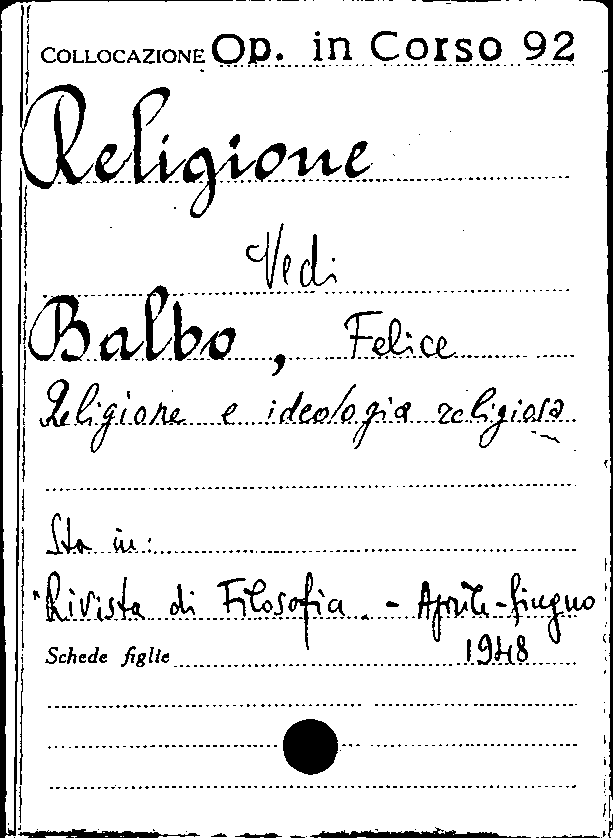 COLLOCAZIONE Op. in Corso 92
Religione
Vedi
Balbo, Felice
Religione e ideologia religiosa
Sta in:
"Rivista di Filosofia. - Aprile-Giugno
Schede figlie 1948